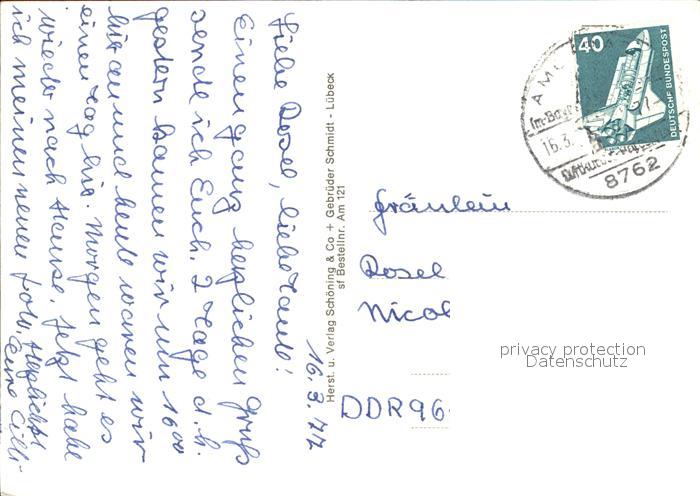 16.3.77
Liebe Rosel, liebe Tante!
Einen ganz herzlichen Gruß
sende ich Euch. 2 Tage d.h.
gestern kamen wir um 16 00
hier an und heute waren wir
einen Tag hier. Morgen geht es
wieder nach Hause. Jetzt habe
ich meinen neuen Herzlichst
Eure Cilli
Herst. u. Verlag Schöning & Co + Gebrüder Schmidt - Lübeck
sf Bestellnr. Am 121
40
DEUTSCHE BUNDESPOST
16.3.
8762
Fräulein
Rosel
Nicol
DDR 96
privacy protection
Datenschutz